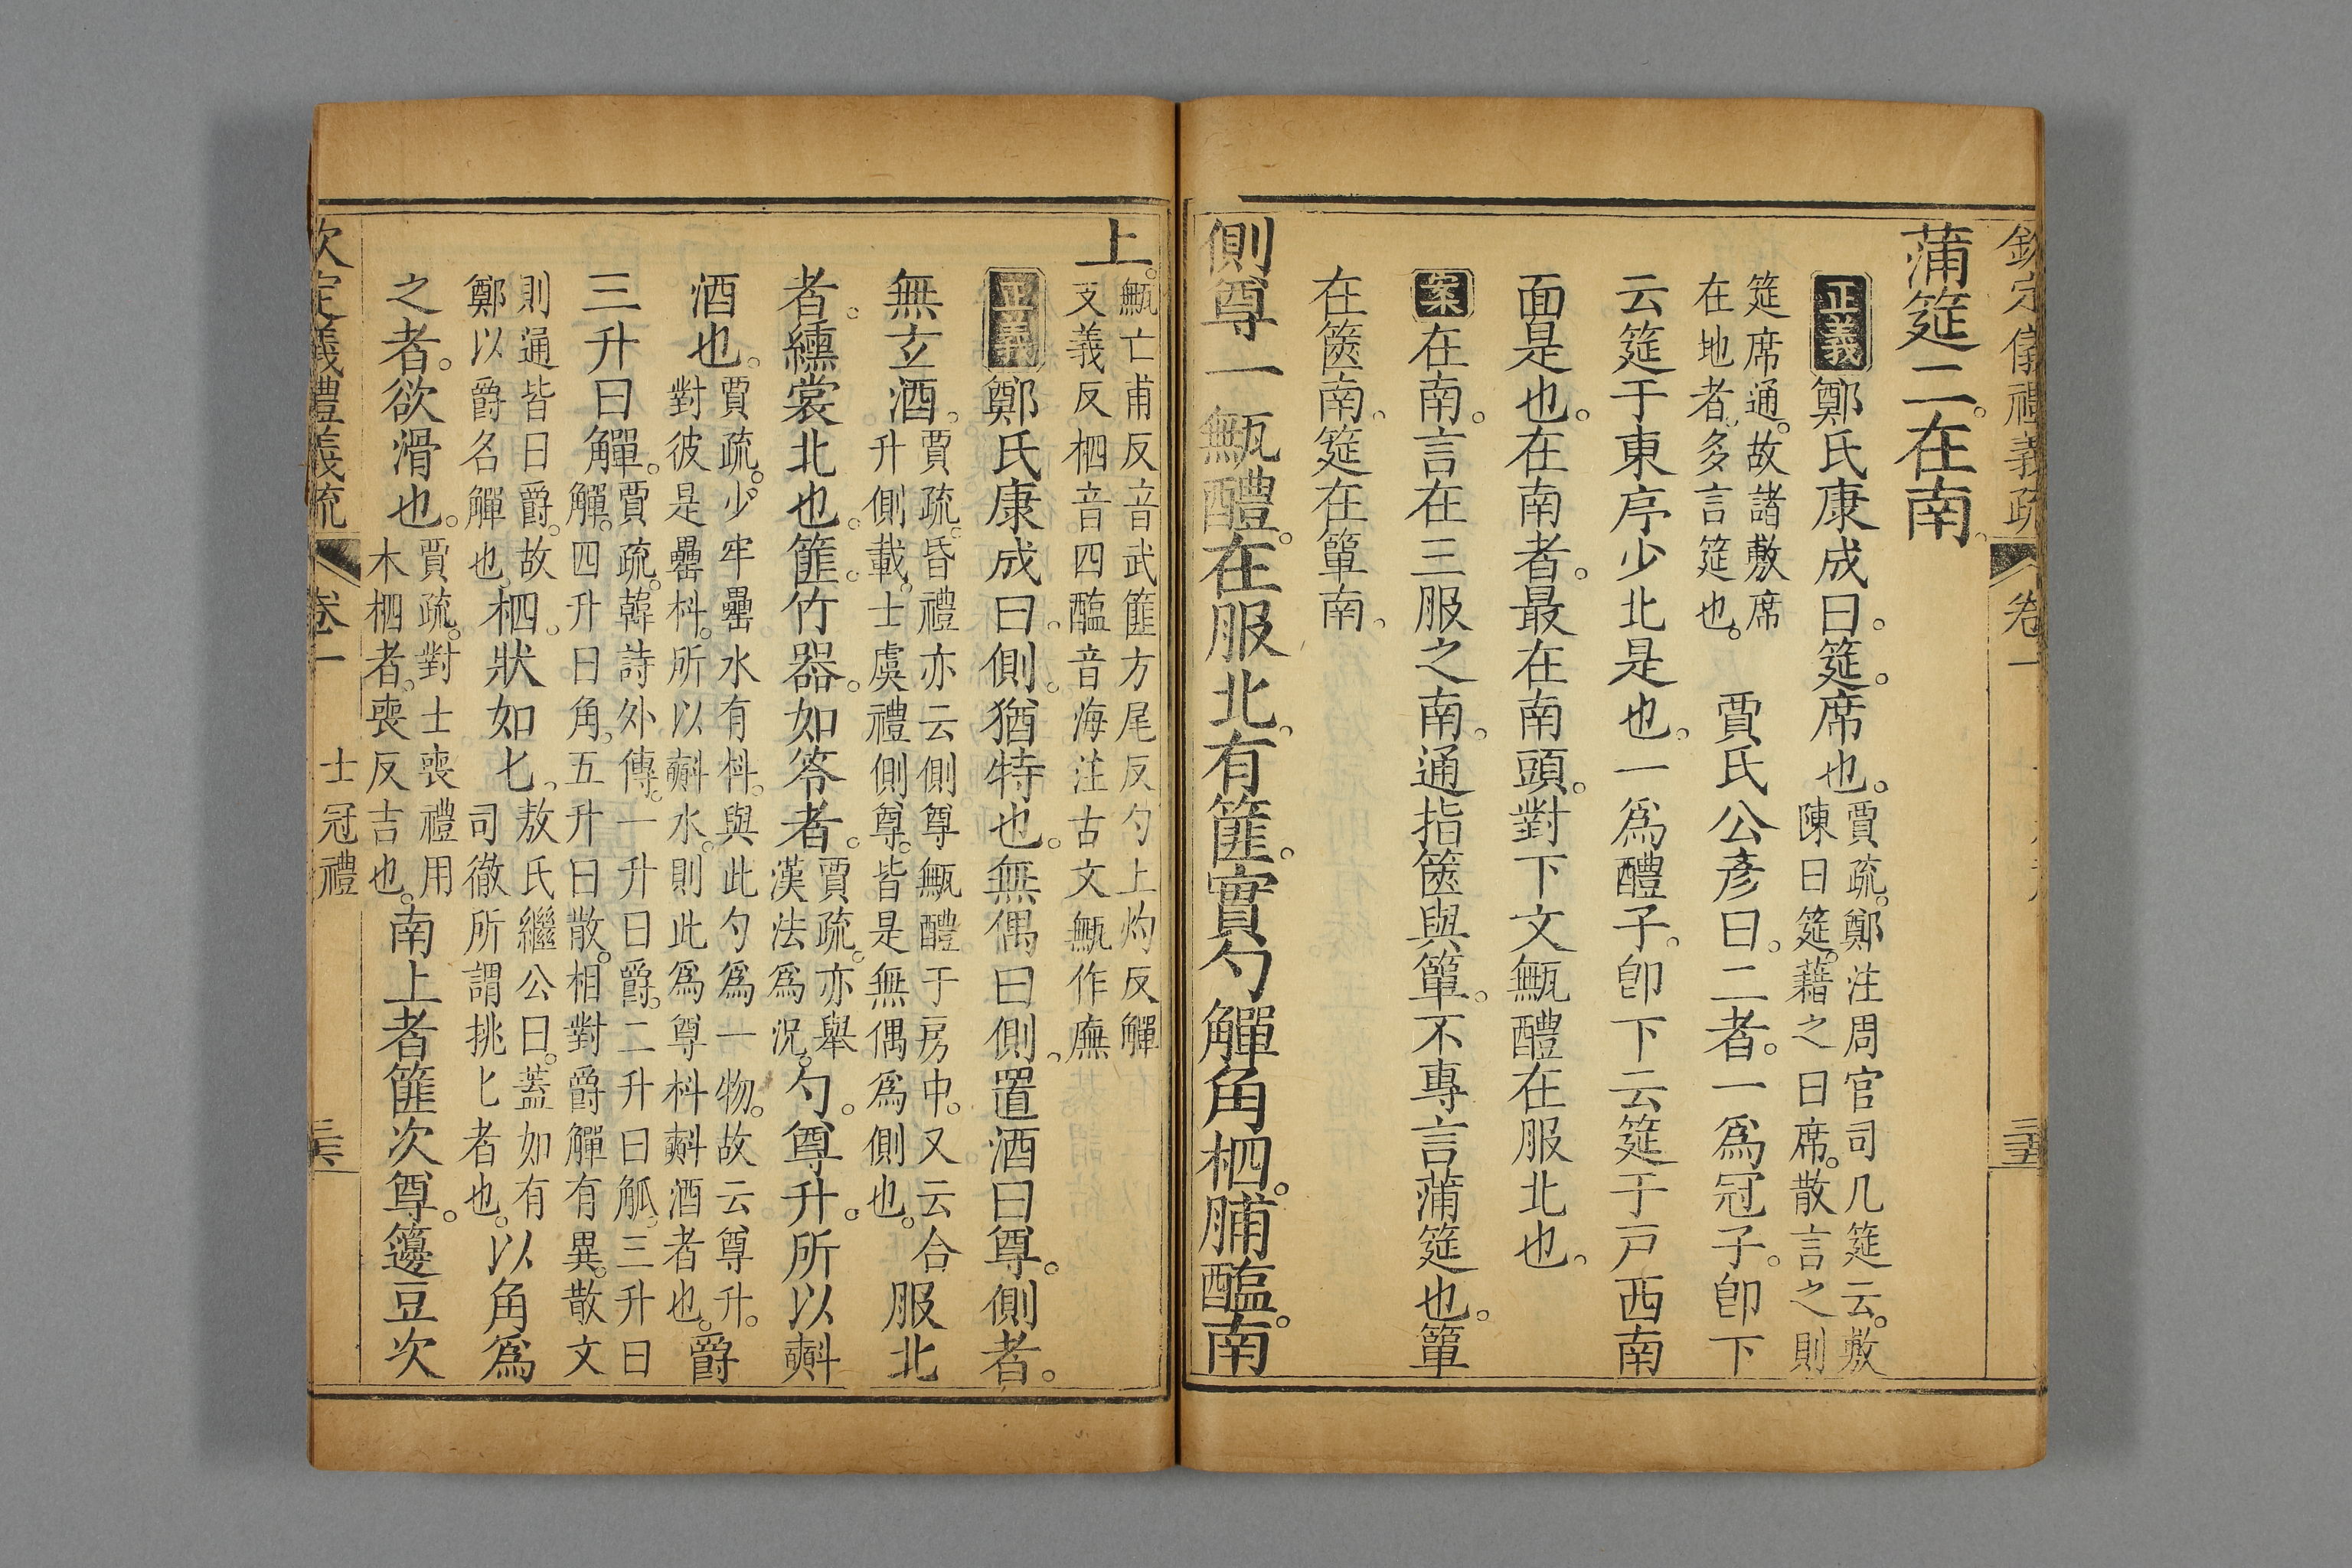 欽定儀禮義疏 卷一 三五
蒲筵二。在南。
正義 鄭氏康成曰。筵。席也。賈疏。鄭注周官司几筵云。敷
陳曰筵。藉之曰席。散言之則
筵席通。故諸敷席
在地者。多言筵也。 賈氏公彥曰。二者。一爲冠子。卽下
云筵于東序少北是也。一爲醴子。卽下云筵于戶西南
面是也。在南者。最在南頭。對下文甒醴在服北也。
案 在南。言在三服之南。通指篋與簞。不專言蒲筵也。簞
在篋南。筵在簞南。
側尊一甒醴。在服北。有篚。實勺觶角柶。脯醢。南
上。甒亡甫反音武篚方尾反勺上灼反觶
支義反柶音四醢音海注古文甒作廡
正義 鄭氏康成曰。側。猶特也。無偶曰側。置酒曰尊。側者。
無玄酒。賈疏。昏禮亦云側尊甒醴于房中。又云合
升側載。士虞禮側尊。皆是無偶爲側也。服北
者。纁裳北也。篚。竹器。如笭者。賈疏。亦舉
漢法爲況。勺。尊升。所以㪺
酒也。賈疏。少牢罍水有枓。與此勺爲一物。故云尊升。
對彼是罍枓。所以㪺水。則此爲尊枓㪺酒者也。爵
三升曰觶。賈疏。韓詩外傳。一升曰爵。二升曰觚。三升曰
觶。四升曰角。五升曰散。相對爵觶有異。散文
則通皆曰爵。故
鄭以爵名觶也。柶。狀如匕。敖氏繼公曰。蓋如有
司徹所謂挑匕者也。以角爲
之者。欲滑也。賈疏。對士喪禮用
木柶者。喪反吉也。南上者篚次尊。籩豆次
欽定儀禮義疏 卷一 士冠禮 三六